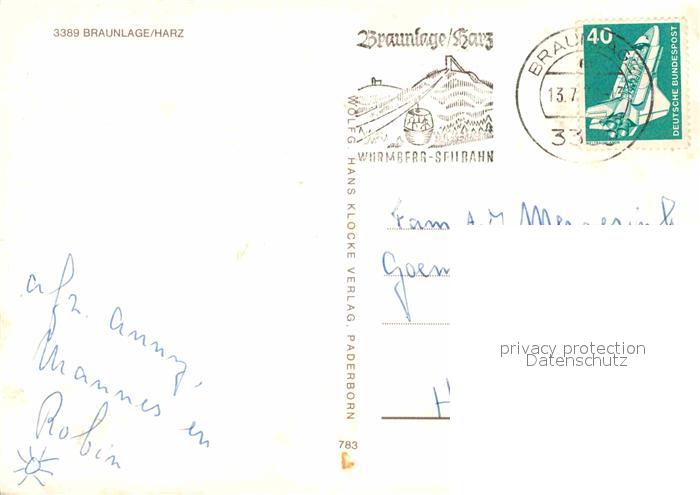 3389 BRAUNLAGE/HARZ
Braunlage/Harz
WURMBERG-SEILBAHN
BRAUNLAG
13.7
33
40
DEUTSCHE BUNDESPOST
WOLFG. HANS KLOCKE VERLAG, PADERBORN
783
Fam
afz. Anny,
Mannes en
Robin
privacy protection
Datenschutz